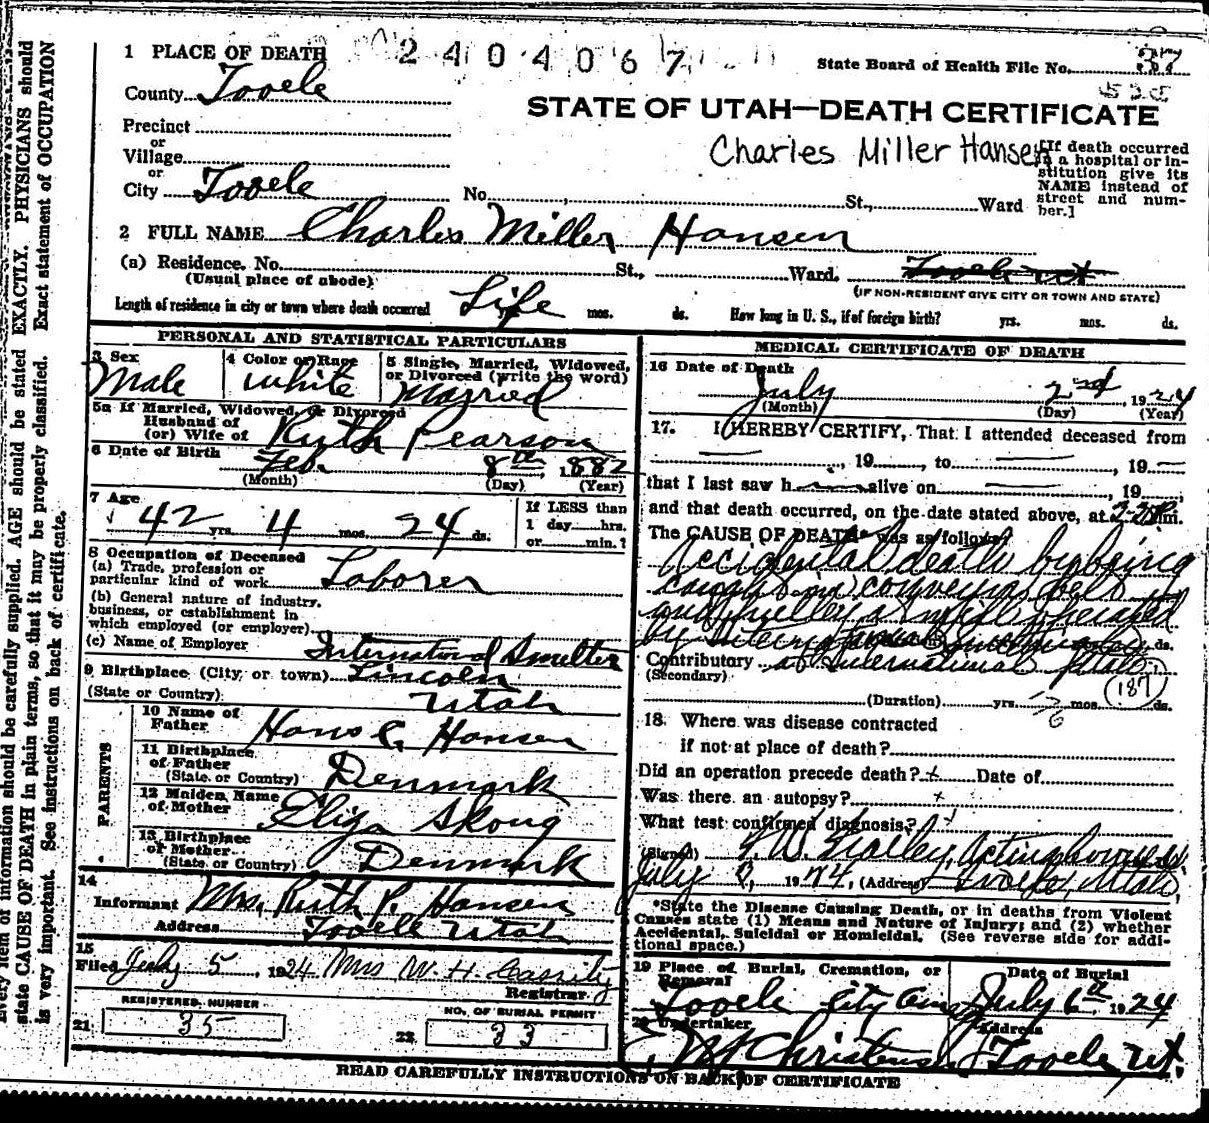 1 PLACE OF DEATH
2404067
State Board of Health File No.
County Tooele
STATE OF UTAH—DEATH CERTIFICATE
Precinct
or
Village
or
City Tooele No. St., Ward
Charles Miller Hansen
[If death occurred
in a hospital or in-
stitution give its
NAME instead of
street and num-
ber.]
2 FULL NAME Charles Miller Hansen
(a) Residence, No. St., Ward. Tooele Ut
(Usual place of abode)
(IF NON-RESIDENT GIVE CITY OR TOWN AND STATE)
Length of residence in city or town where death occurred Life mos. ds. How long in U. S., if of foreign birth? yrs. mos. ds.
PERSONAL AND STATISTICAL PARTICULARS
3 Sex
Male
4 Color or Race
White
5 Single, Married, Widowed,
or Divorced (write the word)
Married
5a If Married, Widowed, or Divorced
Husband of
(or) Wife of Ruth Pearson
6 Date of Birth
Feb. 8th, 1882
(Month) (Day) (Year)
7 Age
42 yrs. 4 mos. 24 ds.
If LESS than
1 day hrs.
or min.?
8 Occupation of Deceased
(a) Trade, profession or
particular kind of work Laborer
(b) General nature of industry,
business, or establishment in
which employed (or employer)
(c) Name of Employer International Smelter
9 Birthplace (City, or town) Lincoln
(State or Country) Utah
PARENTS
10 Name of
Father Hans C. Hansen
11 Birthplace
of Father
(State or Country) Denmark
12 Maiden Name
of Mother Eliza Skoug
13 Birthplace
of Mother
(State or Country) Denmark
14
Informant Mrs. Ruth P. Hansen
Address Tooele Utah
15
Filed July 5, 1924 Mrs W. H. Cassity
Registrar
REGISTERED NUMBER
21 35
NO. OF BURIAL PERMIT
22 33
MEDICAL CERTIFICATE OF DEATH
16 Date of Death
July 2nd, 1924
(Month) (Day) (Year)
17. I HEREBY CERTIFY, That I attended deceased from
, 19, to , 19
that I last saw h alive on , 19
and that death occurred, on the date stated above, at m.
The CAUSE OF DEATH* was as follows:
Accidental death by being
caught in conveyor belt
and pulley a mill operated
by International Smelting ds.
Contributory at International, Utah
(Secondary)
(187)
(Duration) yrs. mos. ds.
18. Where was disease contracted
if not at place of death?
Did an operation precede death? Date of
Was there an autopsy?
What test confirmed diagnosis?
(Signed)
July 1924, (Address) Tooele, Utah
*State the Disease Causing Death, or in deaths from Violent
Causes state (1) Means and Nature of Injury; and (2) whether
Accidental, Suicidal or Homicidal. (See reverse side for addi-
tional space.)
19 Place of Burial, Cremation, or
Removal
Tooele City Cem
Date of Burial
July 6th, 1924
20 Undertaker
Address
Tooele, Ut.
READ CAREFULLY INSTRUCTIONS ON BACK OF CERTIFICATE
Every item of information should be carefully supplied. AGE should be stated EXACTLY. PHYSICIANS should
state CAUSE OF DEATH in plain terms, so that it may be properly classified. Exact statement of OCCUPATION
is very important. See instructions on back of certificate.